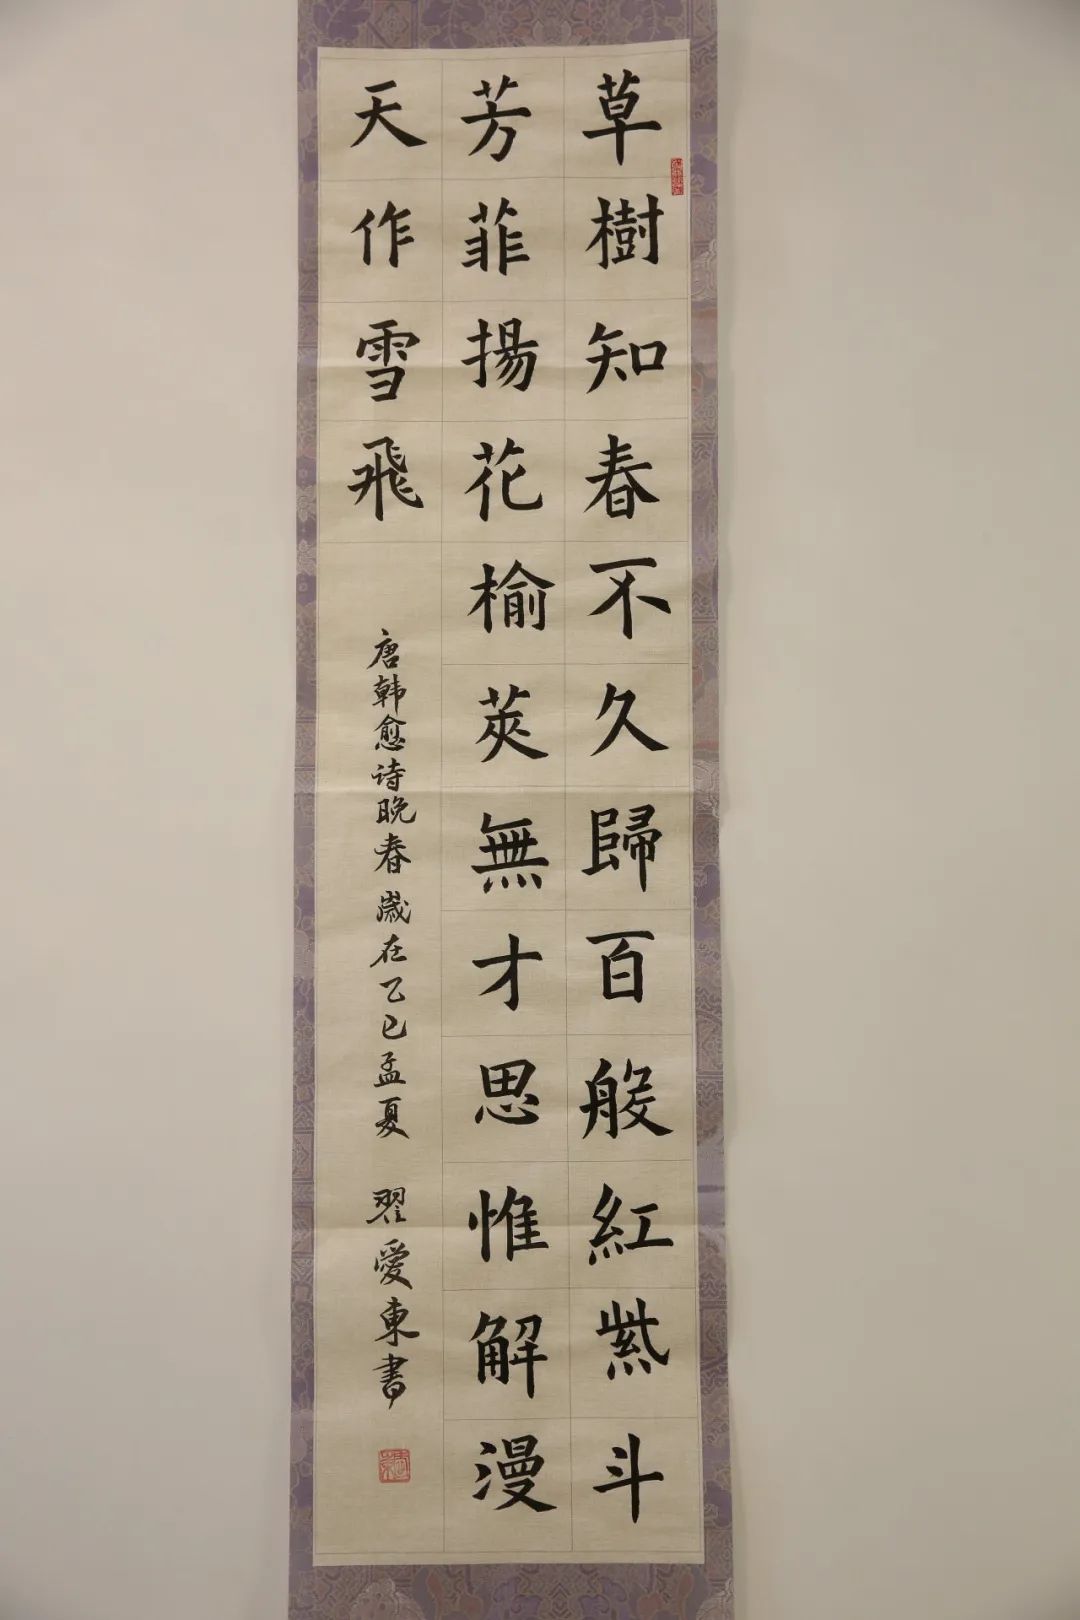 草樹知春不久歸百般紅紫斗
芳菲揚花榆莢無才思惟解漫
天作雪飛
唐韩愈诗晚春歲在乙巳孟夏 翟愛東書